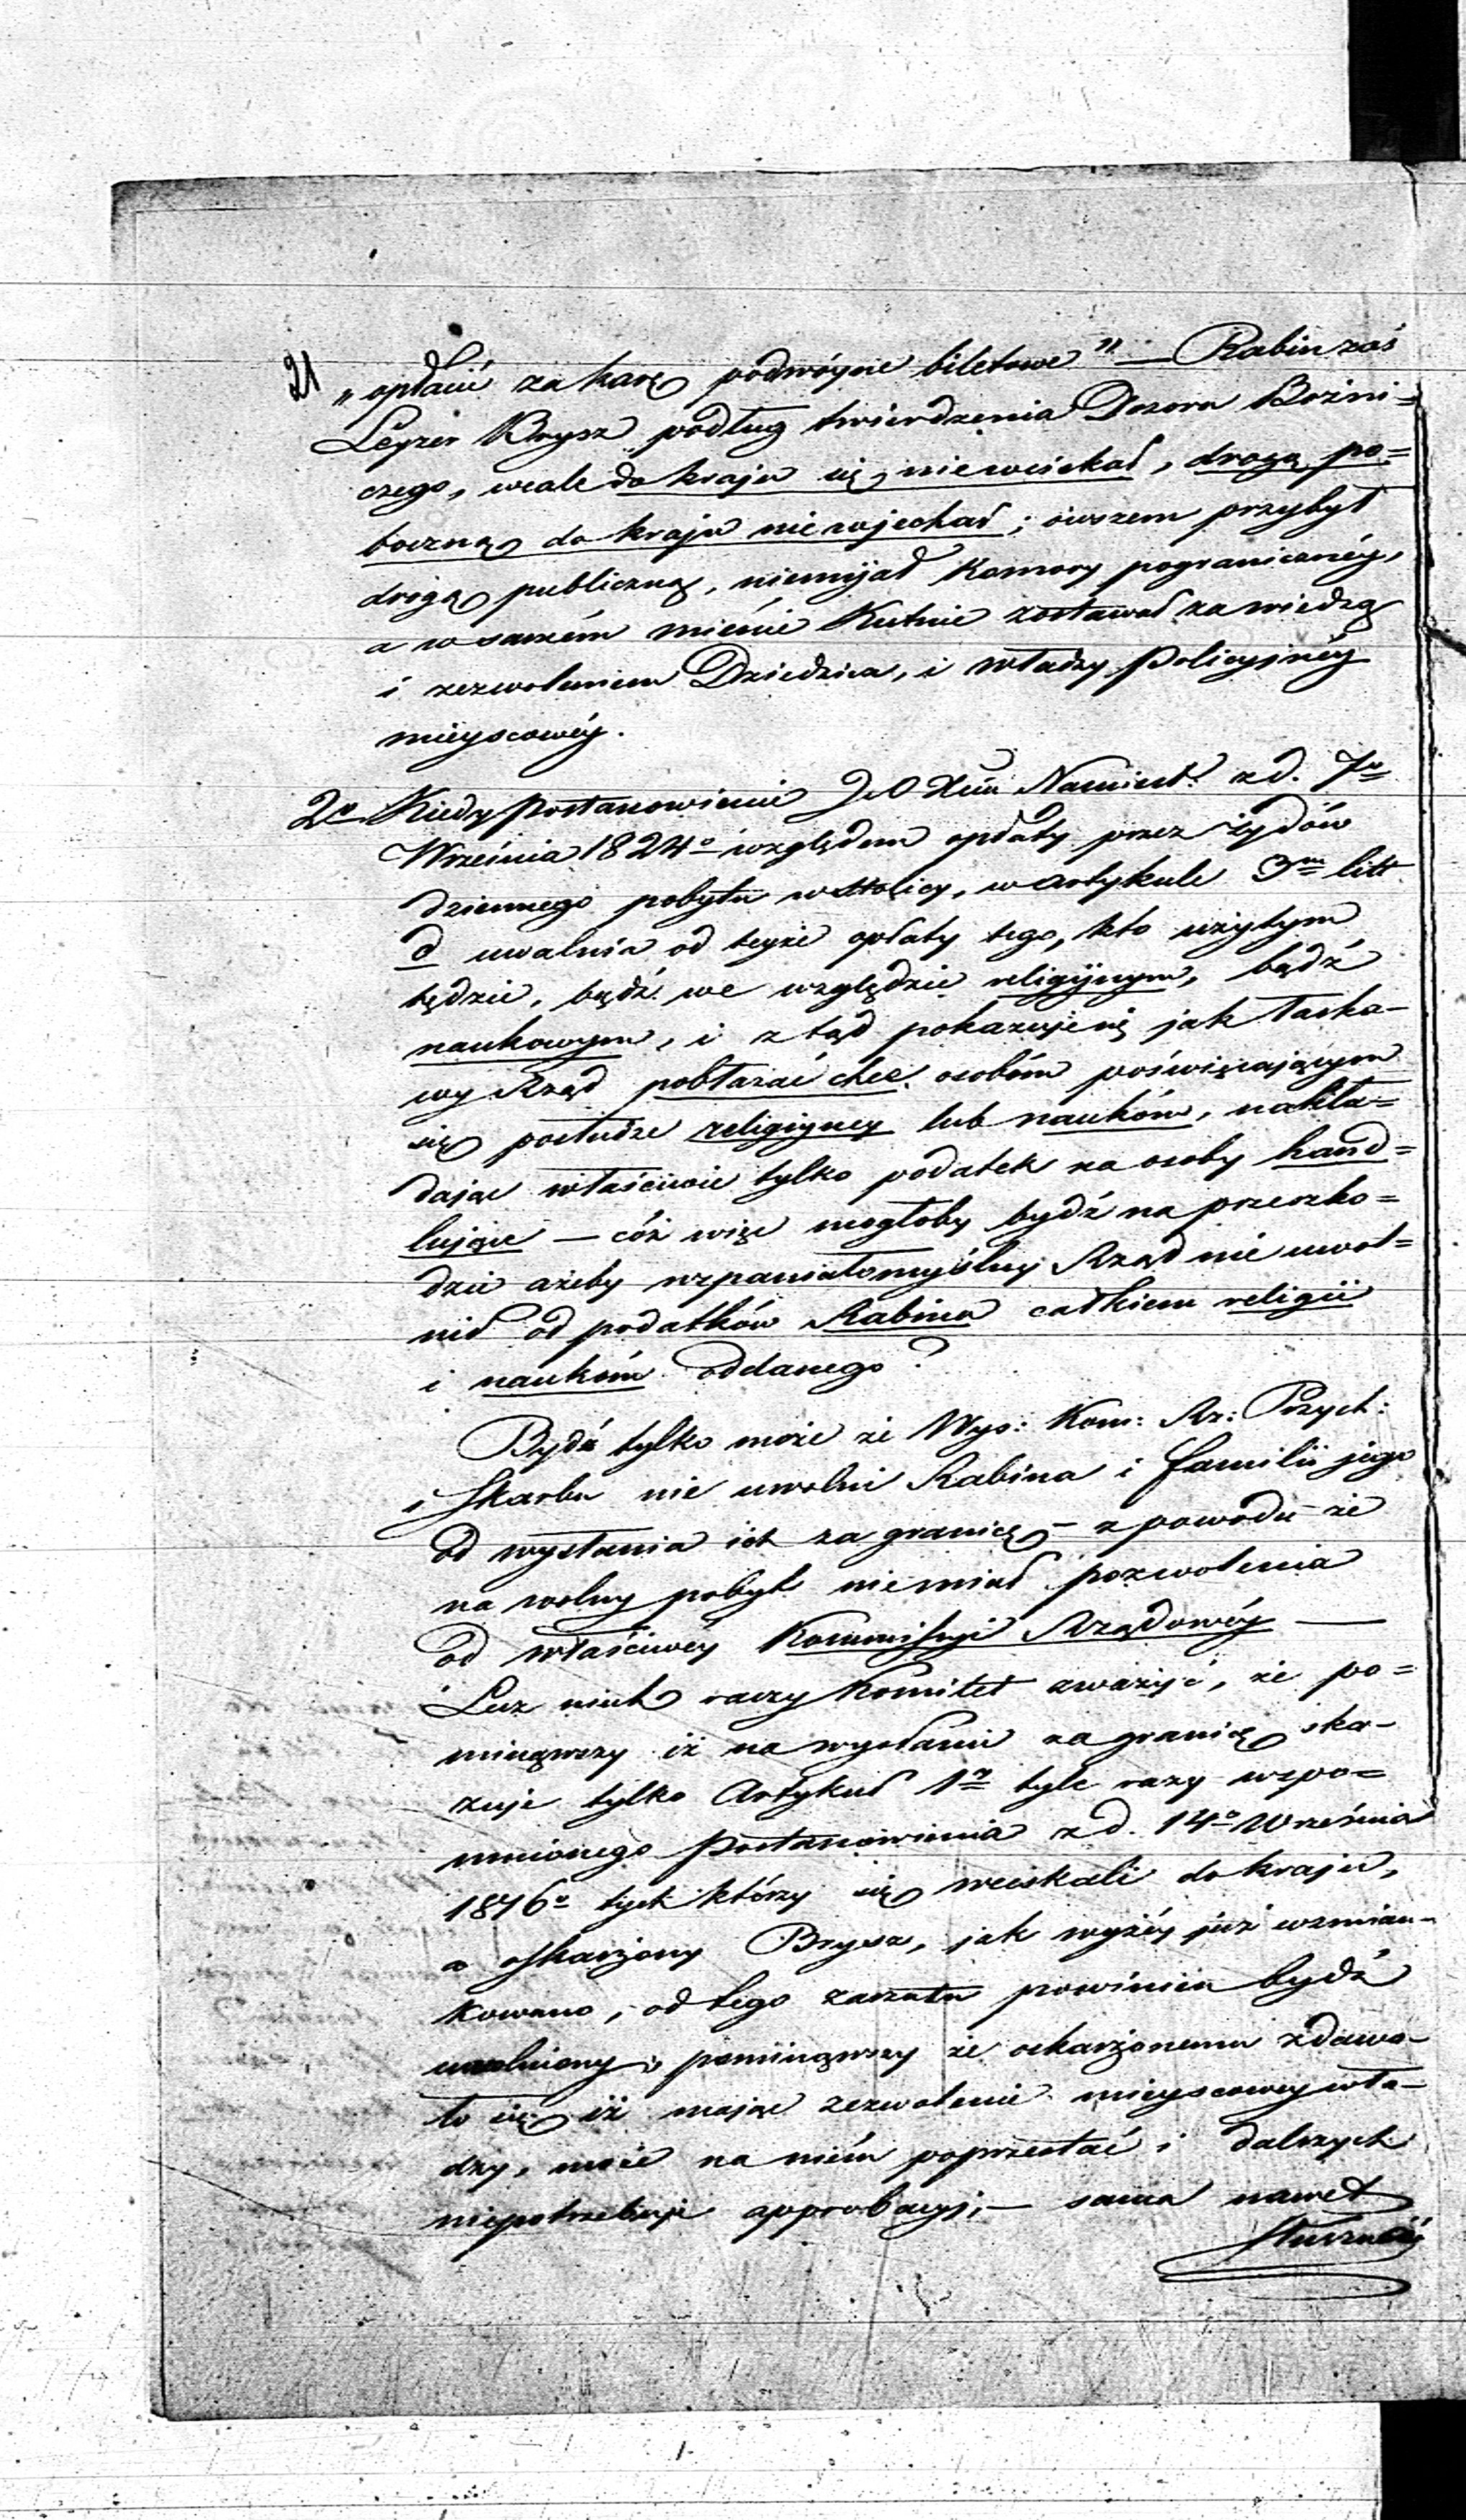 21 „opłacić za karę podwóyne biletowe" — Rabin zaś
Leyzer Brysz podług twierdzenia Dozoru Bożni=
czego, wcale do kraju się niewciskał, drogą po=
boczną do kraju nie wjechał; owszem przybył
drogą publiczną, niemijał Komory pogranicznéy,
a w samém mieście Kutnie zostawał za wiedzą
i zezwoleniem Dziedzica, i władzy Policyjnéy
mieyscowéy.
2e Kiedy postanowienie JO Xcia Namiest: z d. 7o
Września 1824o względem opłaty przez żydów
dziennego pobytu w stolicy, w artykule 3m litt
d uwalnia od teyże opłaty tego, kto użytym
będzie, bądź we względzie religiynym, bądź
naukowym, i ztąd pokazuje się jak łaska-
wy Rząd pobłażać chce osobóm poświęcającym
się posłudze religiyney lub naukóm, nakła=
dając właściwie tylko podatek na osoby hand=
lujące — cóż więc mogłoby bydź na przeszko=
dzie ażeby wspaniałomyślny Rząd nie uwol=
nił od podatków Rabina całkiem religii
i naukóm oddanego?
Bydź tylko może że Wys: Kom: Rz: Przych:
i Skarbu nie uwolni Rabina i familii jego
od wysłania ich za granicę — z powodu że
na wolny pobyt niemiał pozwolenia
od właściwéy Kommissyi Rządowéy —
Lecz niech raczy Komitet zważyć, że po=
minąwszy iż na wysłanie za granicę ska-
zuje tylko Artykuł 1y tyle razy wspo=
mnionego Postanowienia z d. 14o Września
1816o tych którzy się wciskali do kraju,
a oskarżony Brysz, jak wyżéy już wzmian-
kowano, od tego zarzutu powinien bydź
uwolniony; pominąwszy że oskarżonemu zdawa-
ło się iż mając zezwolenie mieyscowey wła-
dzy, może na niém poprzestać i dalszych
niepotrzebuje approbacyj, — sama nawet
słuszność